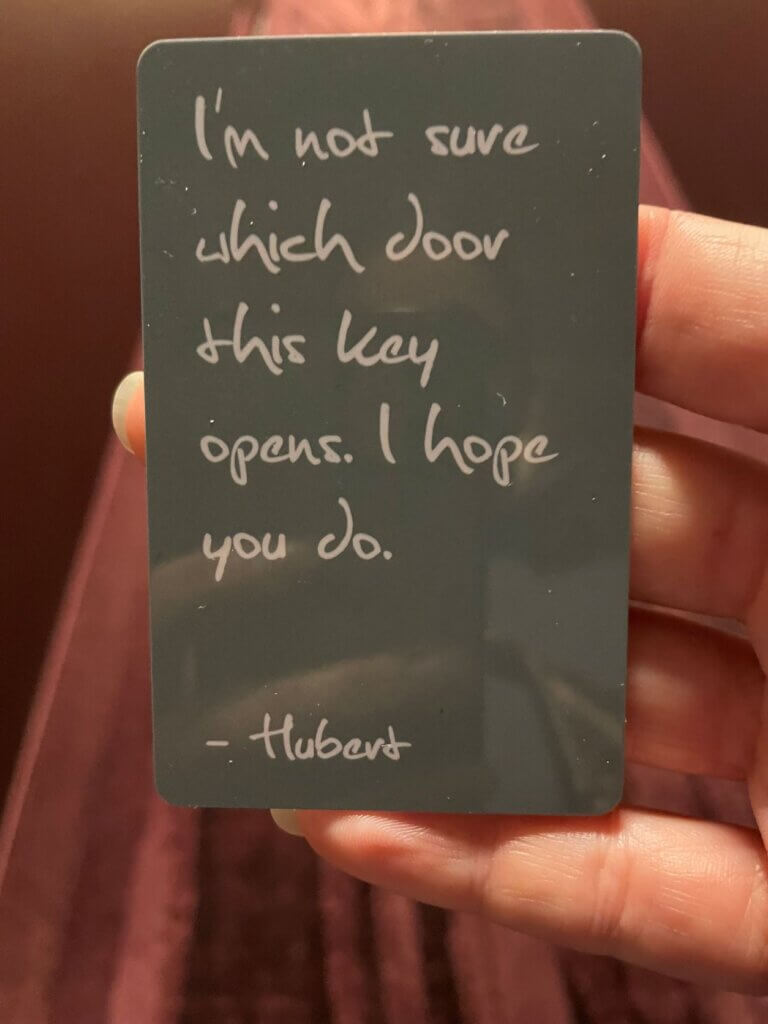 I'm not sure
which door
this key
opens. I hope
you do.
- Hubert